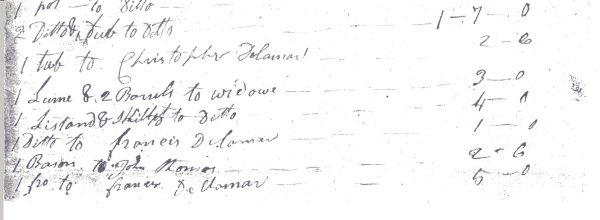 1 pot — to Ditto
2 Ditto & tub to Ditto 1 — 7 — 0
1 tub to Christopher Delamar 2 - 6
1 Lume & 2 Barrels to widowe 3 — 0
1 & Skillet to Ditto 4 — 0
1 Ditto to francis Delamar 1 — 0
1 Bason to John 2 - 6
1 fro to francis Delamar 5 — 0